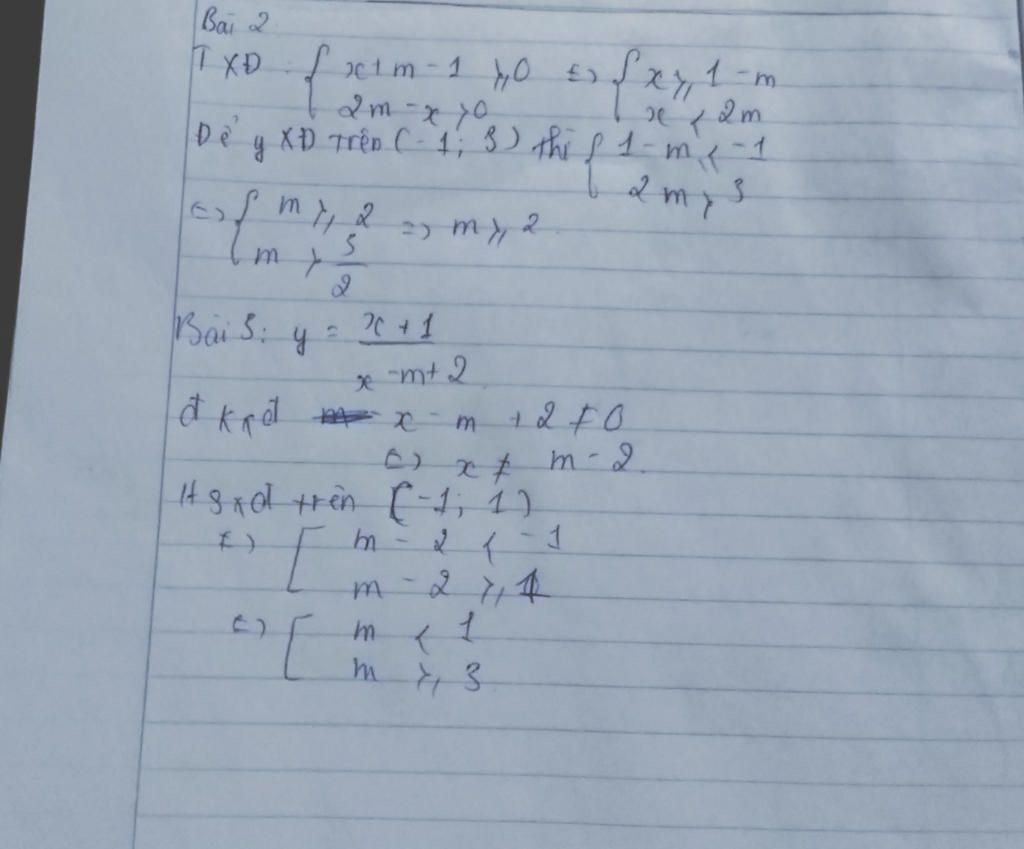 Bài 2
TXĐ: { x+m-1 ⩾0 <=> { x⩾ 1-m
2m-x >0 x < 2m
Để y XĐ trên (-1; 3) thì { 1-m ⩽ -1
2m > 3
<=> { m ⩾ 2 => m ⩾ 2
m > 3/2
Bài 3: y = x+1
x -m+2
đkxđ x - m + 2 ≠ 0
<=> x ≠ m-2.
HSXĐ trên [-1; 1)
<=> [ m - 2 < -1
m - 2 ⩾ 1
<=> [ m < 1
m ⩾ 3